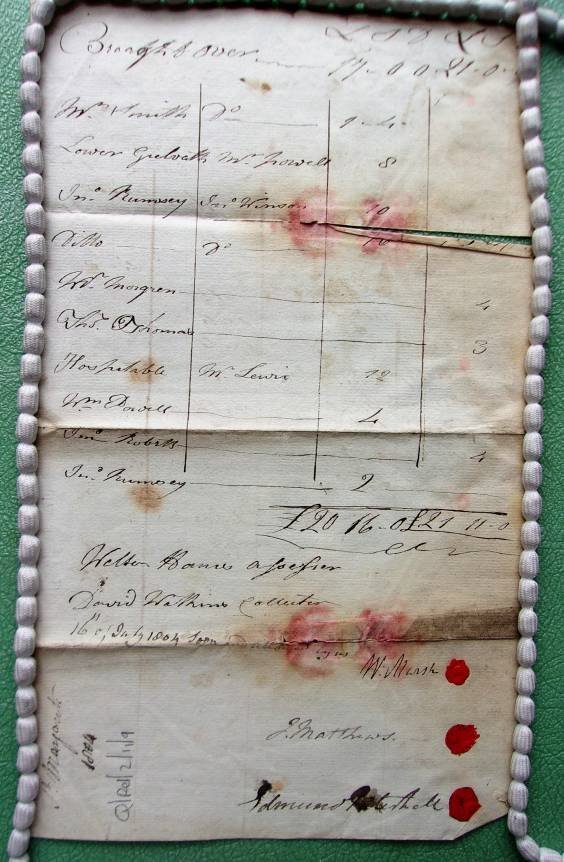 L S D L S
Brought over 17-0 0 21-0
Wm Smith Do 1-4-
Lower Mr Powell 8
Jno Rumsey Jno Winson 10
Ditto Do 10
Wm Morgren 4
Thos Thomas 3
Hospitable Mr Lewis 12
Wm Powell 4
Jno Roberts 4
Jno Rumsey 2
£20 16-0 £21 11-0
Hames assessor
David Watkins Collector
16th of July 1804
W. Marsh
J. Matthews.
Edmund
St Margarets
1804